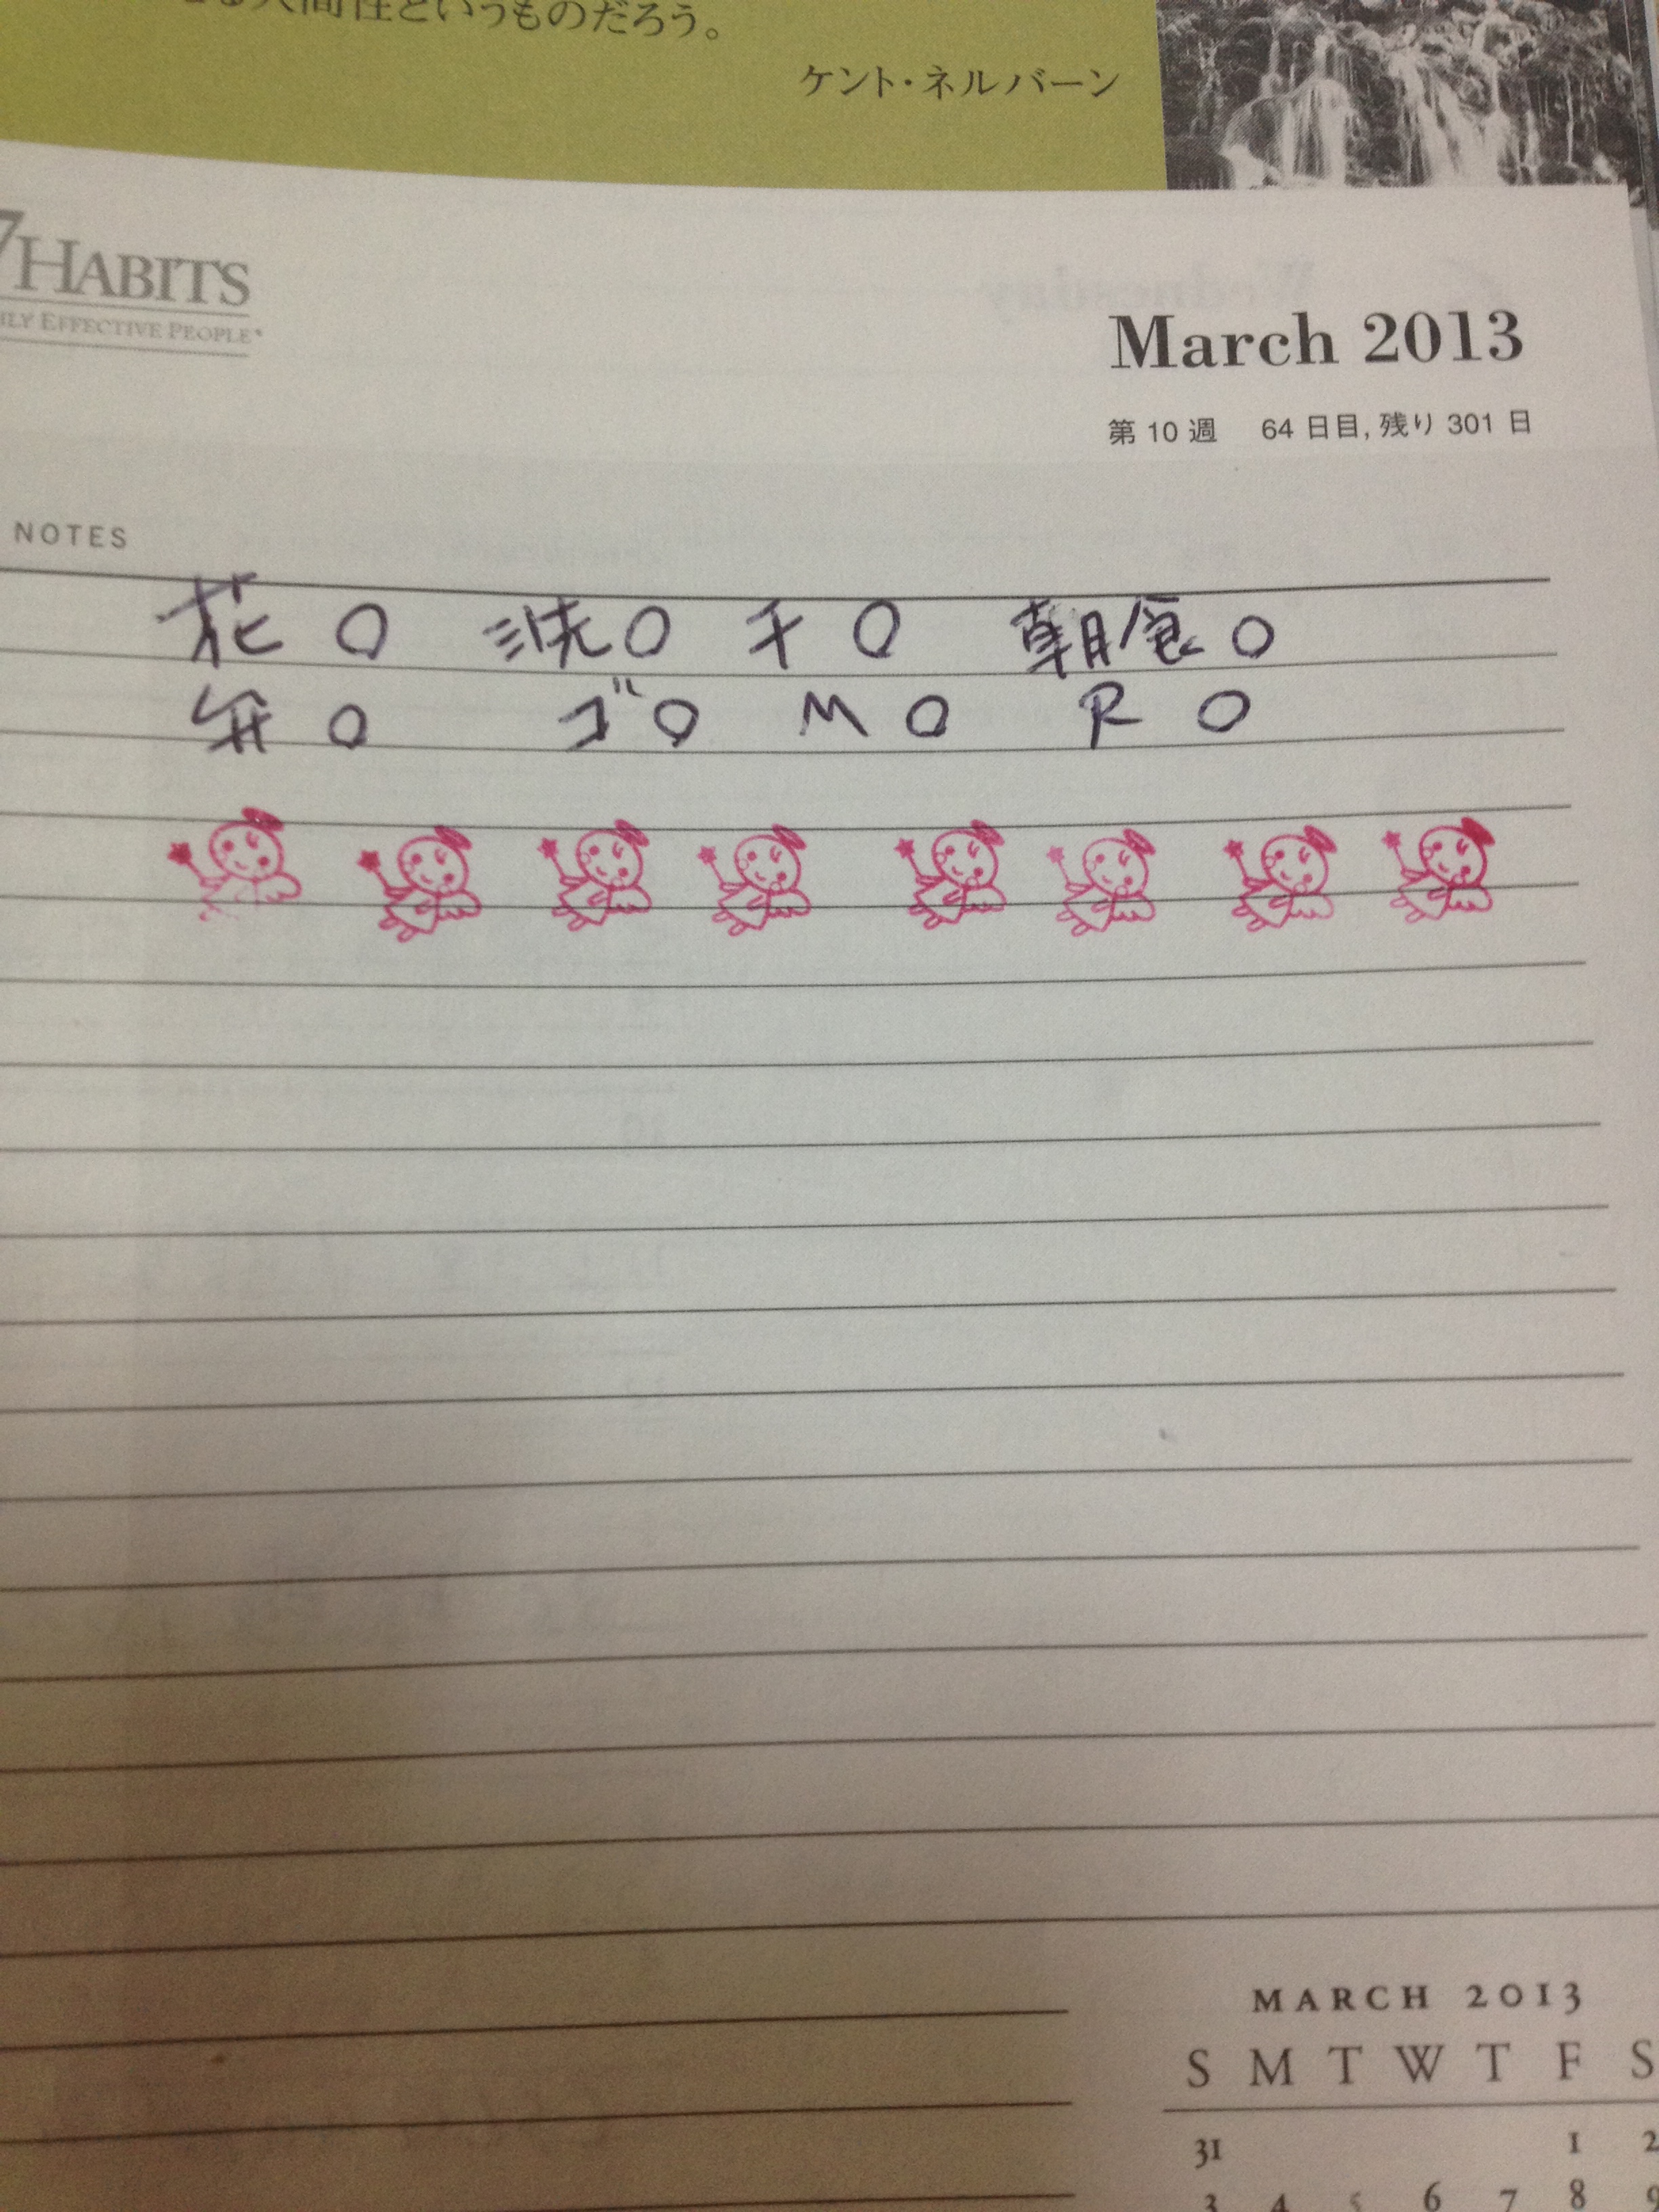 人間性というものだろう。
ケント・ネルバーン
7 HABITS
EFFECTIVE PEOPLE®
March 2013
第 10 週 64 日目, 残り 301 日
NOTES
花 ○ 洗 ○ 干 ○ 朝食 ○
弁 ○ ゴ ○ M ○ R ○
MARCH 2013
S M T W T F S
31 1 2
3 4 5 6 7 8 9